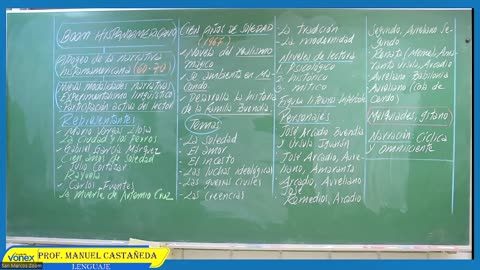 BOOM HISPANOAMERICANO
Apogeo de la narrativa
hispanoamericana (60-70)
Nuevas modalidades narrativas
Experimentalismo lingüístico
Participación activa del lector
Representantes
- Mario Vargas Llosa
La ciudad y los perros
- Gabriel García Márquez
Cien años de soledad
- Julio Cortázar
Rayuela
- Carlos Fuentes
La muerte de Artemio Cruz
CIEN AÑOS DE SOLEDAD
(1967)
- Novela del realismo
mágico
- Se ambienta en Ma
condo
- Desarrolla la historia
de la familia Buendía
Temas
- La soledad
- El amor
- El incesto
- Las luchas ideológicas
- Las guerras civiles
- Las creencias
- La tradición
- La modernidad
Niveles de lectura
1. Psicológico
2. histórico
3. mítico
Personajes
- José Arcadio Buendía
y Úrsula Iguarán
- José Arcadio, Aure
liano, Amaranta
- Arcadio, Aureliano
José
- Remedios, Arcadio
Segundo, Aureliano Se
gundo
- Renata (Meme), Ama
ranta Úrsula, Arcadio
- Aureliano Babilonia
- Aureliano (cola de
cerdo)
- Melquíades, gitano
- Narración cíclica
y omnisciente
vonex
San Marcos Zoom
PROF. MANUEL CASTAÑEDA
LENGUAJE